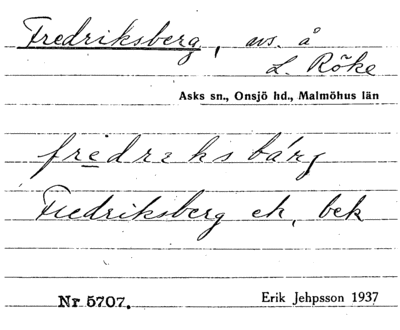 Fredriksberg, avs. å
L. Röke
Asks sn., Onsjö hd., Malmöhus län
fredreksbárg
Fredriksberg ek, bek
Nr 5707.
Erik Jehpsson 1937